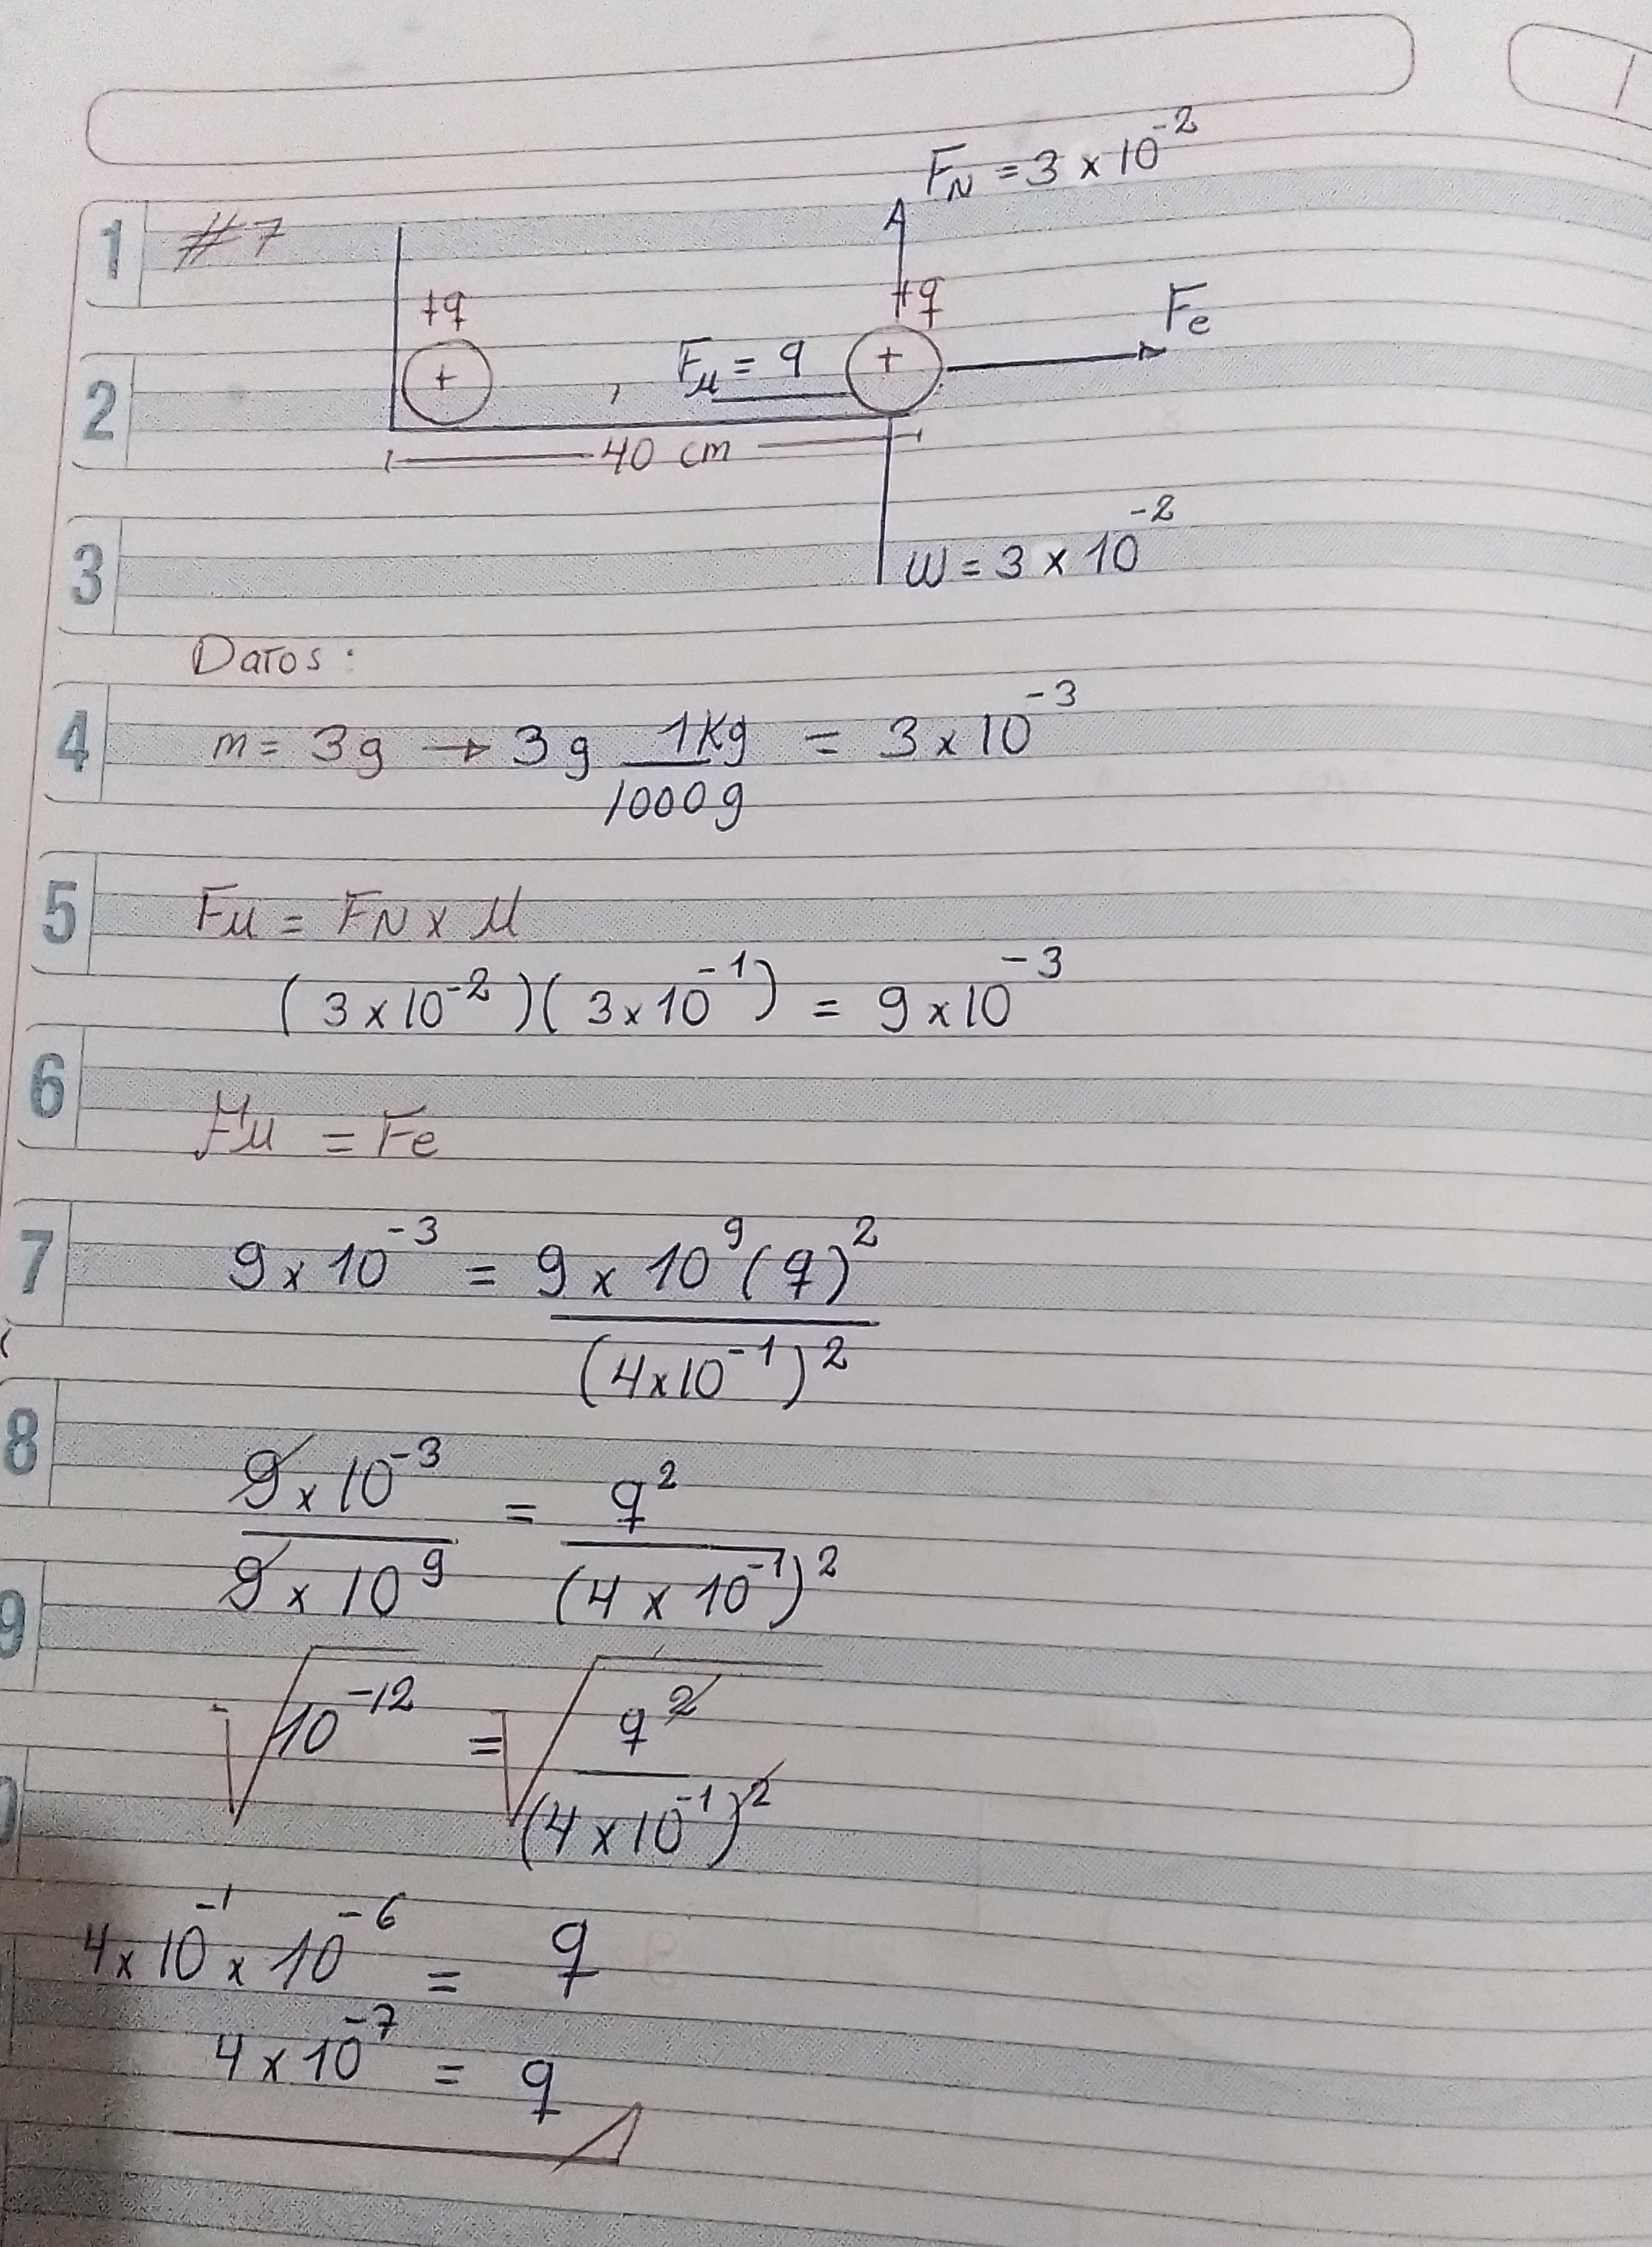 F_N = 3 x 10^-2
1 #7
+q +q Fe
+ Fμ = 9 +
2
40 cm
3 w = 3 x 10^-2
Datos:
4 m = 3g → 3g 1Kg/1000g = 3 x 10^-3
5 Fμ = FN x μ
(3 x 10^-2)(3 x 10^-1) = 9 x 10^-3
6
Fμ = Fe
7 9 x 10^-3 = 9 x 10^9 (q)^2 / (4x10^-1)^2
8 9 x 10^-3 / 9 x 10^9 = q^2 / (4 x 10^-1)^2
9
√10^-12 = √q^2 / (4 x 10^-1)^2
4 x 10^-1 x 10^-6 = q
4 x 10^-7 = q